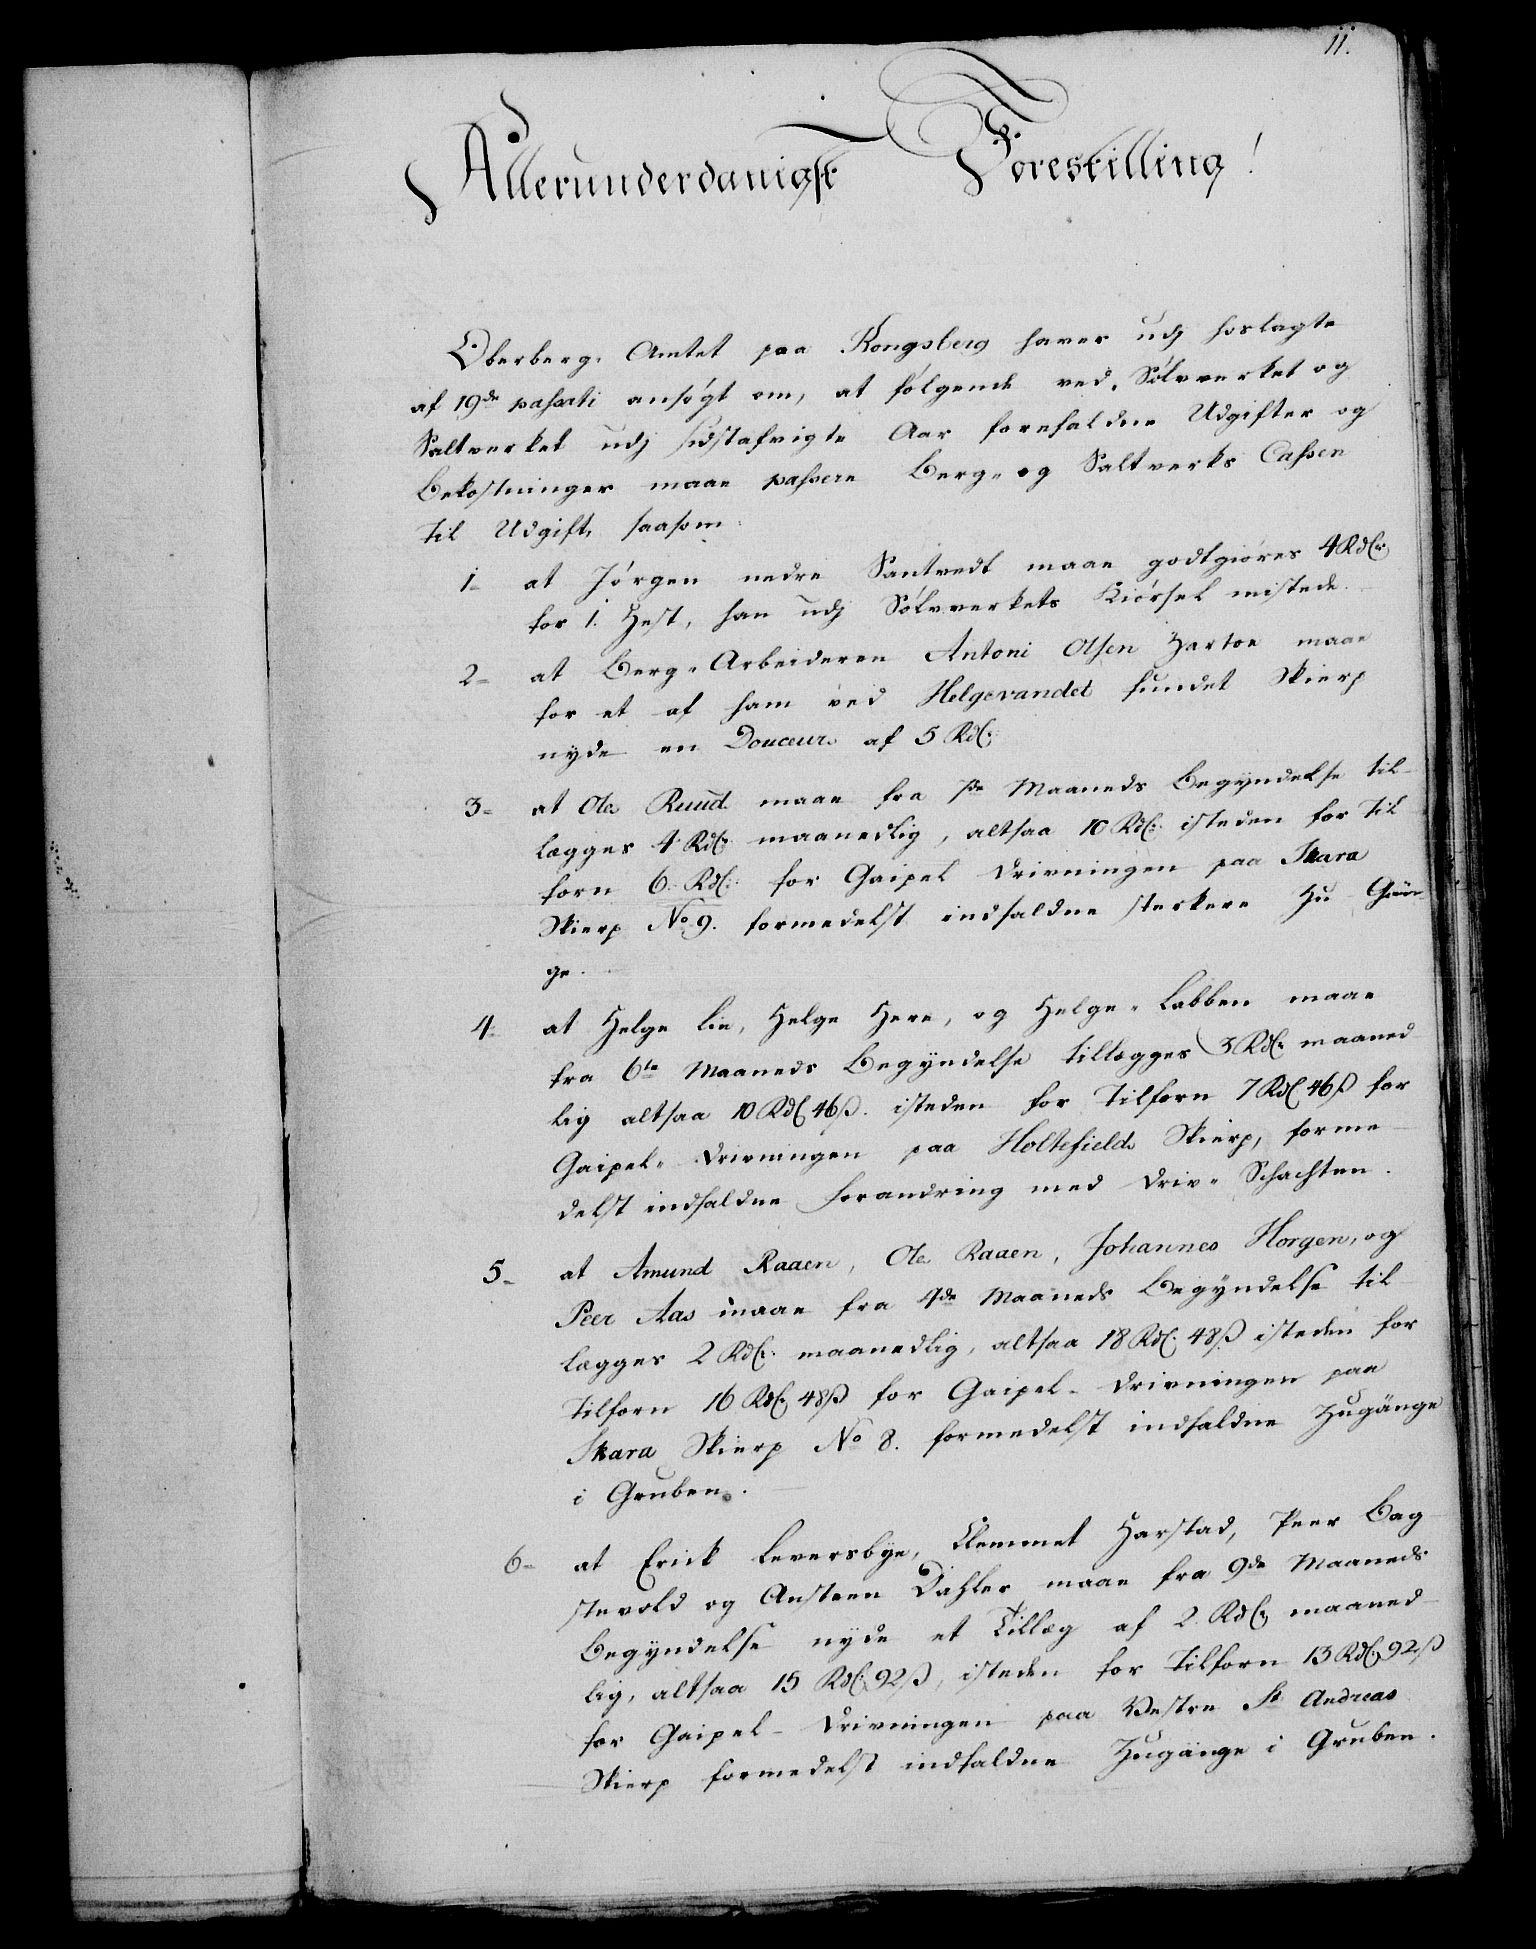 11.
Allerunderdanigst Forestilling!
Oberberg-Amtet paa Kongsberg haver udj hoslagte
af 19de passati ansøgt om, at følgende ved Sølvverket og
Saltverket udj sidstafvigte Aar forefaldne Udgifter og
Bekostninger maae passere Berg- og Saltverks Cassen
til Udgift, saasom:
1- at Jørgen nedre Santvedt maae godtgiøres 4 Rdlr.
for 1. Hest, han udj Sølvverkets Kiørsel mistede.
2- at Berg-Arbeideren Antoni Olsen Hartoe maae
for et af ham ved Helgevandet fundet Skierp
nyde en Douceur af 5 Rdl:
3- at Ole Ruud maae fra Maaneds Begyndelse til-
lægges 4 Rdl: maanedlig, altsaa 10 Rdl: isteden for til
forn 6. Rdl: for Gaipel Drivningen paa Skara
Skierp No 9. formedelst indfaldne sterkere Zu-Gän-
ge.
4- at Helge Lie, Helge Here, og Helge-Labben maae
fra 6te Maaneds Begyndelse tillægges 3 Rdl: maaned
lig altsaa 10 Rdl 46 ß. isteden for tilforn 7 Rdl 46 ß for
Gaipel-Drivningen paa Holtefields Skierp, forme
delst indfaldne Forandring med Driv-Schachten.
5- at Amund Raaen, Ole Raaen, Johannes Horgen, og
Peer Aas maae fra 4de Maaneds Begyndelse til
lægges 2 Rdl: maanedlig, altsaa 18 Rdl: 48 ß isteden for
tilforn 16 Rdl: 48 ß for Gaipel-Drivningen paa
Skara Skierp No 8. formedelst indfaldne Zugänge
i Gruben.
6- at Erick Leversbye, Clemmet Harstad, Peer Bag
stevold og Ansteen Dahler maae fra 9de Maaneds
Begyndelse nyde et Tillæg af 2 Rdl: maaned
lig, altsaa 15 Rdl: 92 ß, isteden for tilforn 13 Rdl: 92 ß
for Gaipel-Drivningen paa Vestre St Andreas
Skierp formedelst indfaldne Zugänge i Gruben.